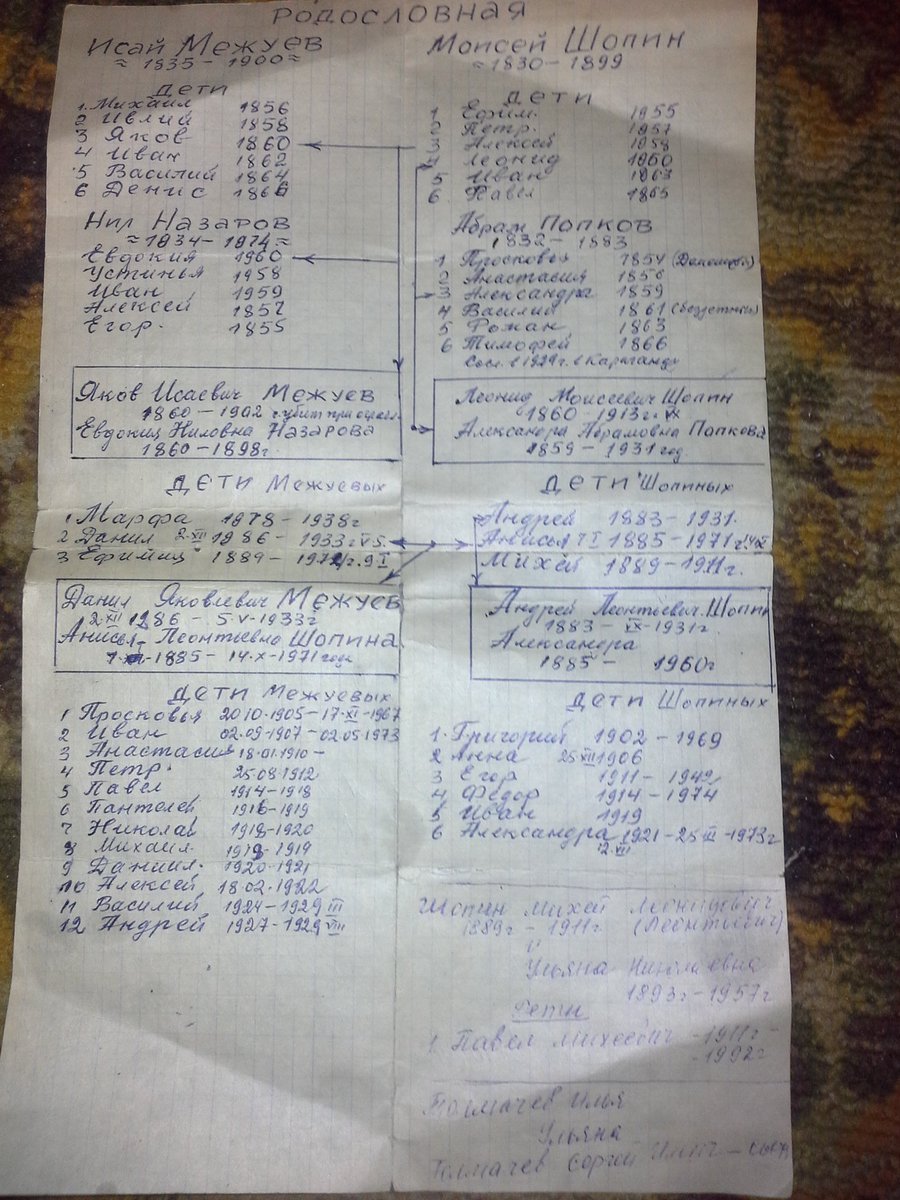 Родословная
Исай Межуев
≈ 1835 – 1900 ≈
Дети
1. Михаил 1856
2 Ивлий 1858
3 Яков 1860
4 Иван 1862
5 Василий 1864
6 Денис 1866
Нил Назаров
≈ 1834 – 1974 ≈
Евдокия 1960
Устинья 1958
Иван 1959
Алексей 1857
Егор. 1855
Яков Исаевич Межуев
1860 – 1902 г. убит при
Евдокия Ниловна Назарова
1860 – 1898г.
Дети Межуевых
1 Марфа 1978 – 1938г
2 Данил 2-XII 1986 – 1933г. V 5.
3 Ефимиц 1889 – г. 9 I
Данил Яковлевич Межуев
2-XII 1986 – 5 V – 1933г
Анисья Леонтьевна Шопина
1885 – 14-X-1971 года
Дети Межуевых
1 Просковья 20 10.1905 – 17-XI-1967
2 Иван 02.09.1907 – 02.05 1973
3 Анастасия 18.01.1910 –
4 Петр. 25.08.1912
5 Павел 1914 – 1918
6 Пантелей 1916 – 1919
7 Николай 1918 – 1920
8 Михаил 1919
9 Даниил. 1920 – 1921
10 Алексей 18.02.1922
11 Василий 1924 – 1929 III
12 Андрей 1927 – 1929 VIII
Моисей Шопин
≈ 1830 – 1899
Дети
1 Ефим. 1955
2 Петр. 1957
3 Алексей 1958
4 Леонид 1860
5 Иван 1863
6. Павел 1865
Абрам Попков
1832 – 1883
1 Просковья 1854
2 Анастасия 1856
3 Александра 1859
4 Василий 1861 (бездетный)
5 Роман 1863
6 Тимофей 1866
в 1929г. в Караганду
Леонид Моисеевич Шопин
1860 – 1913г. IX
Александра Абрамовна Попкова
1859 – 1931 год
Дети Шопиных
Андрей 1883 – 1931.
Анисья I 1885 – 1971 г. 14 X
Михей 1889 – 1911г.
Андрей Леонтьевич Шопин
1883 – IX – 1931г.
Александра
1885 – 1960г
Дети Шопиных
1. Григорий 1902 – 1969
2 Анна 25 XII 1906
3 Егор 1911 – 1942
4 Федор 1914 – 1974
5 Иван 1919
6 Александра 1921 – 25 – 1973г
12. VII
Шопин Михей Леонидович
1889г – 1911г. (Леонтьевич)
и
Ульяна Николаевна
1893г – 1957г
Дети
1. Павел Михеевич – 1911г –
– 1992г
Толмачев Илья
Ульяна
Толмачев Сергей